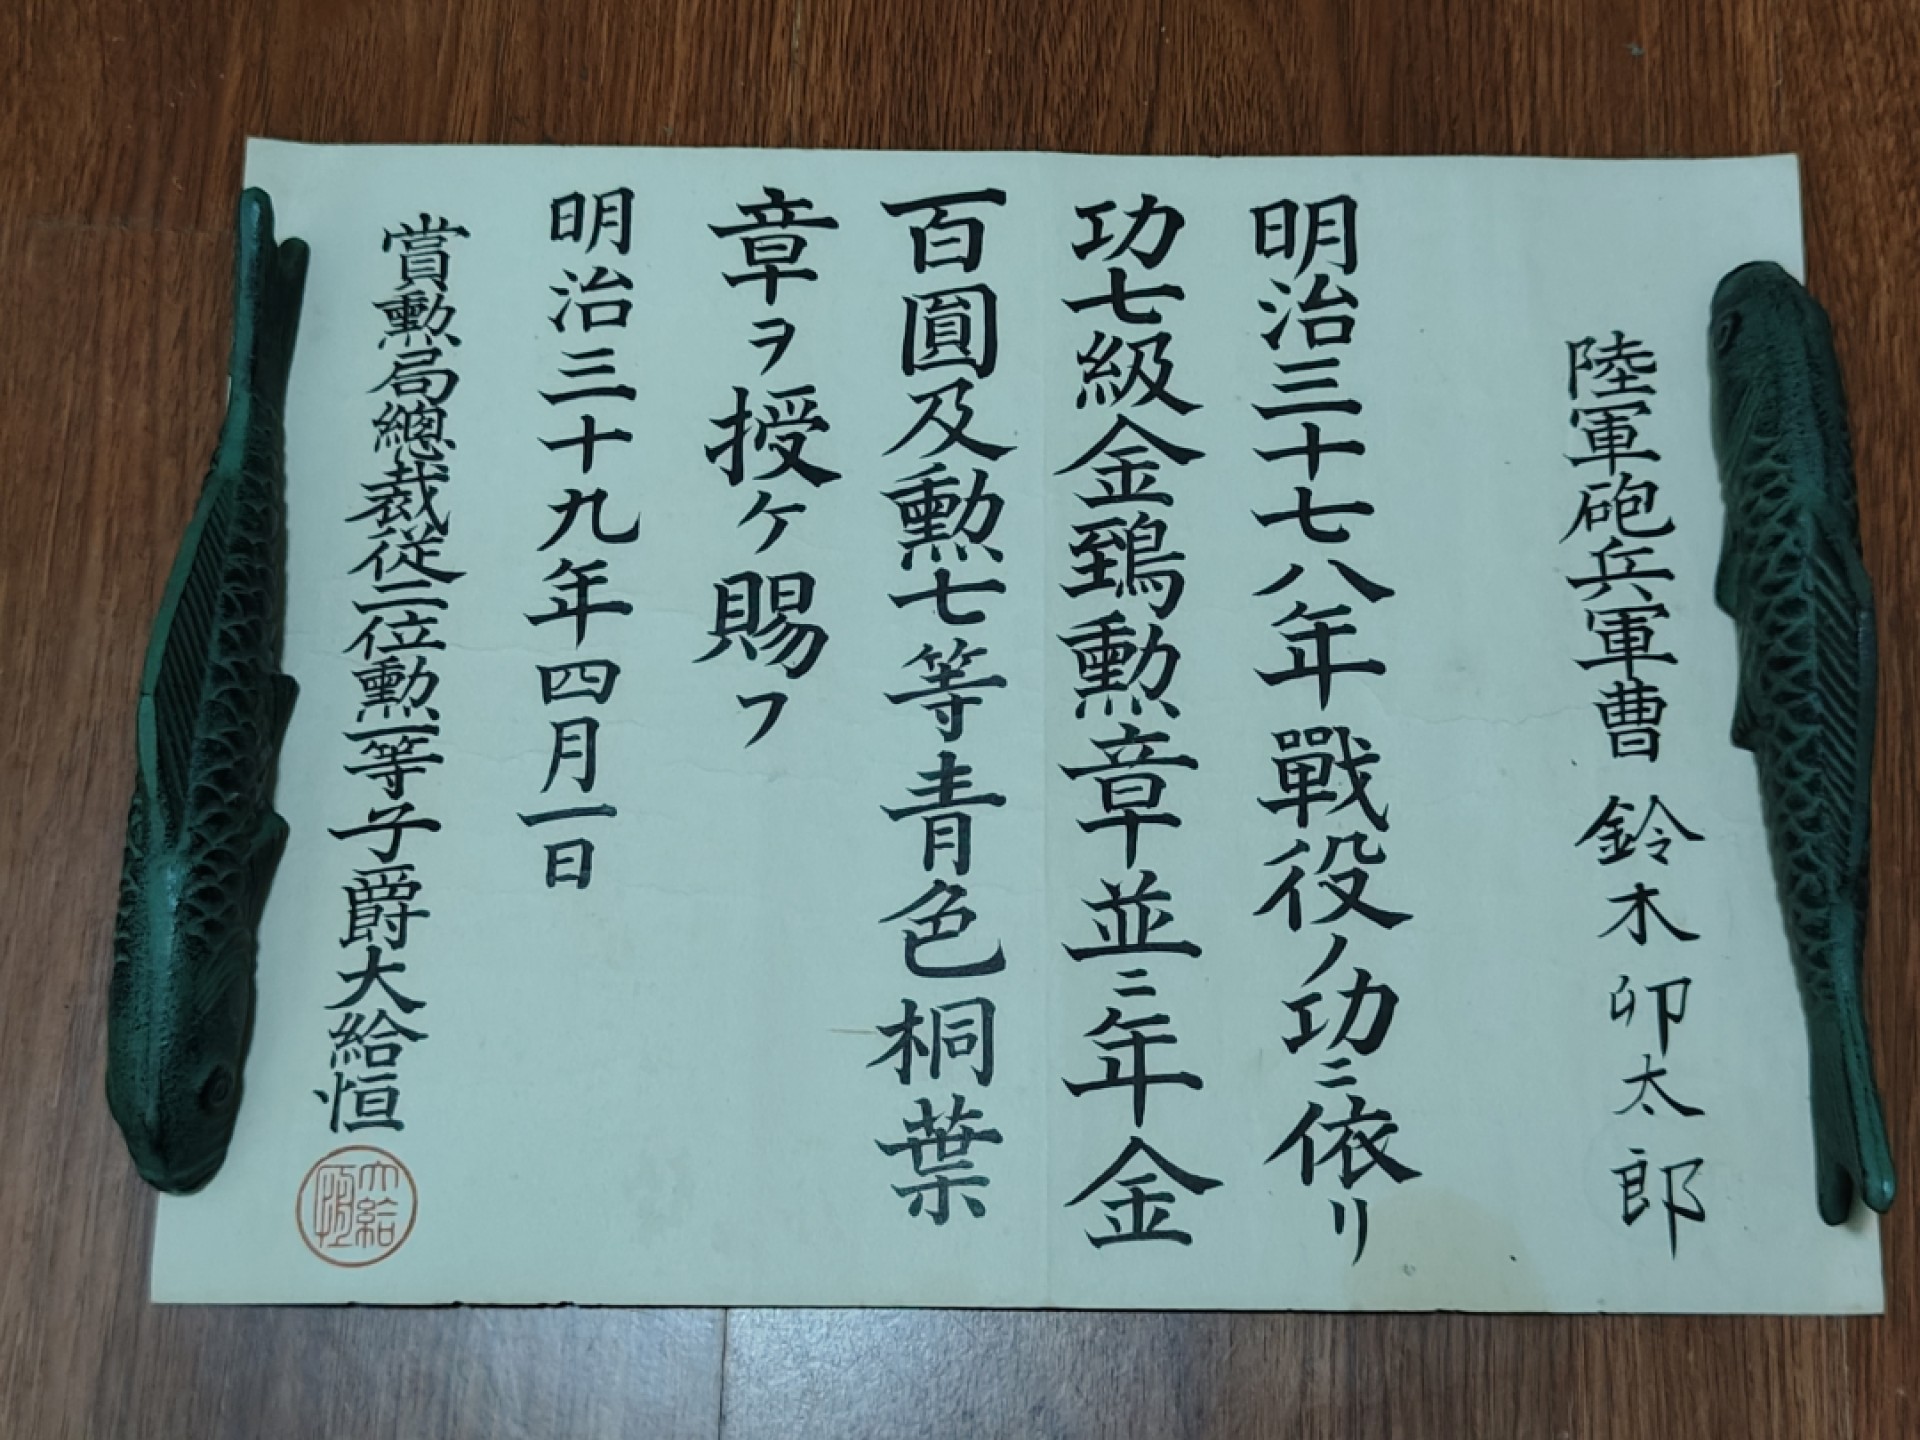 陸軍砲兵軍曹 鈴木卯太郎
明治三十七八年戰役ノ功ニ依リ
功七級金鵄勲章並ニ年金
百圓及勲七等青色桐葉
章ヲ授ケ賜フ
明治三十九年四月一日
賞勲局總裁従二位勲一等子爵大給恒
大給